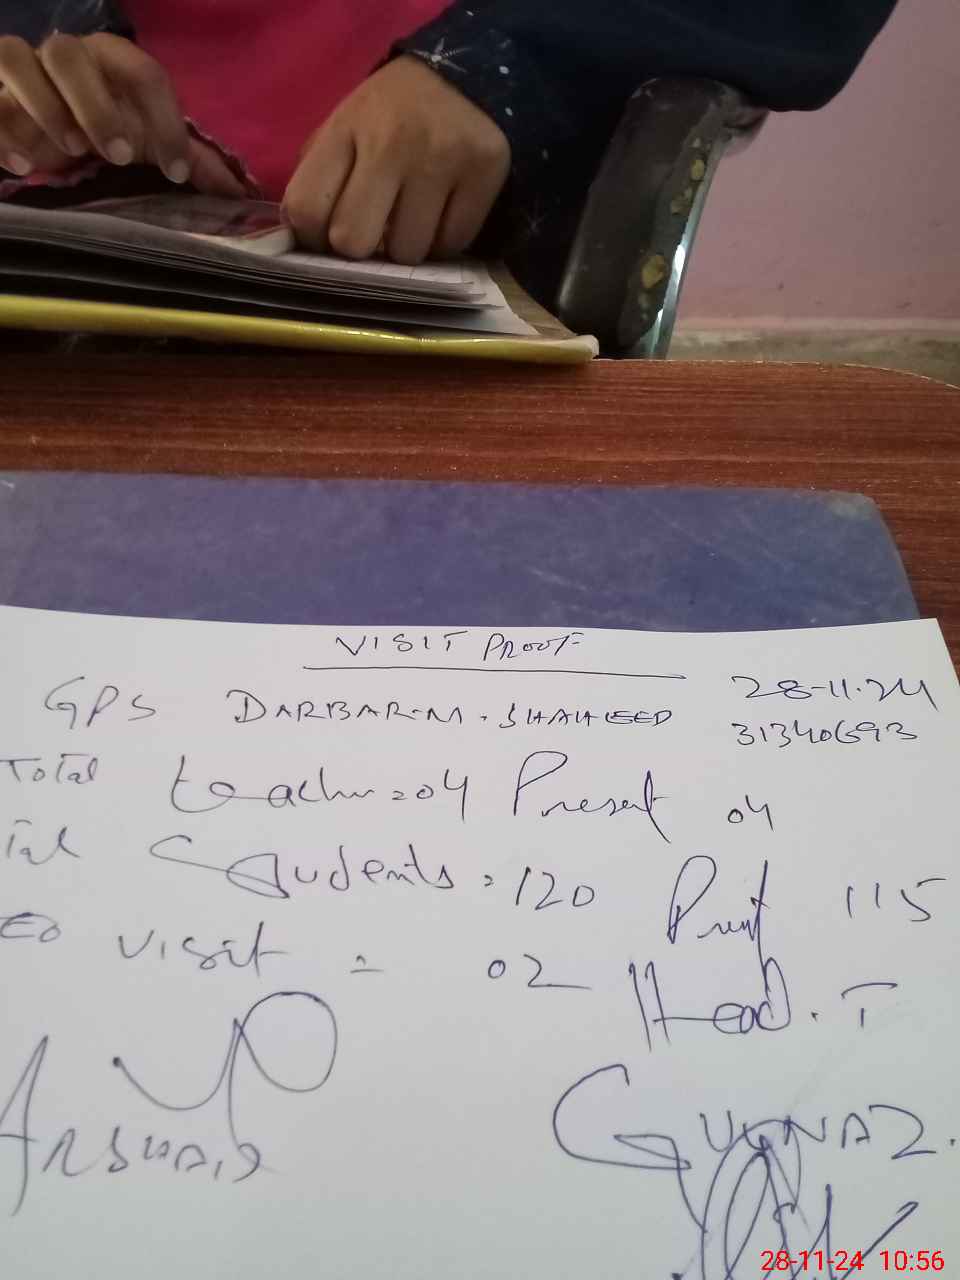 VISIT PROOF
GPS DARBAR.M.SHAHEED 28-11.24
31340693
Total teacher=04 Present 04
Tal Students=120 Prent 115
EO visit = 02 Head.T
ARSHAD GULNAZ.
28-11-24 10:56